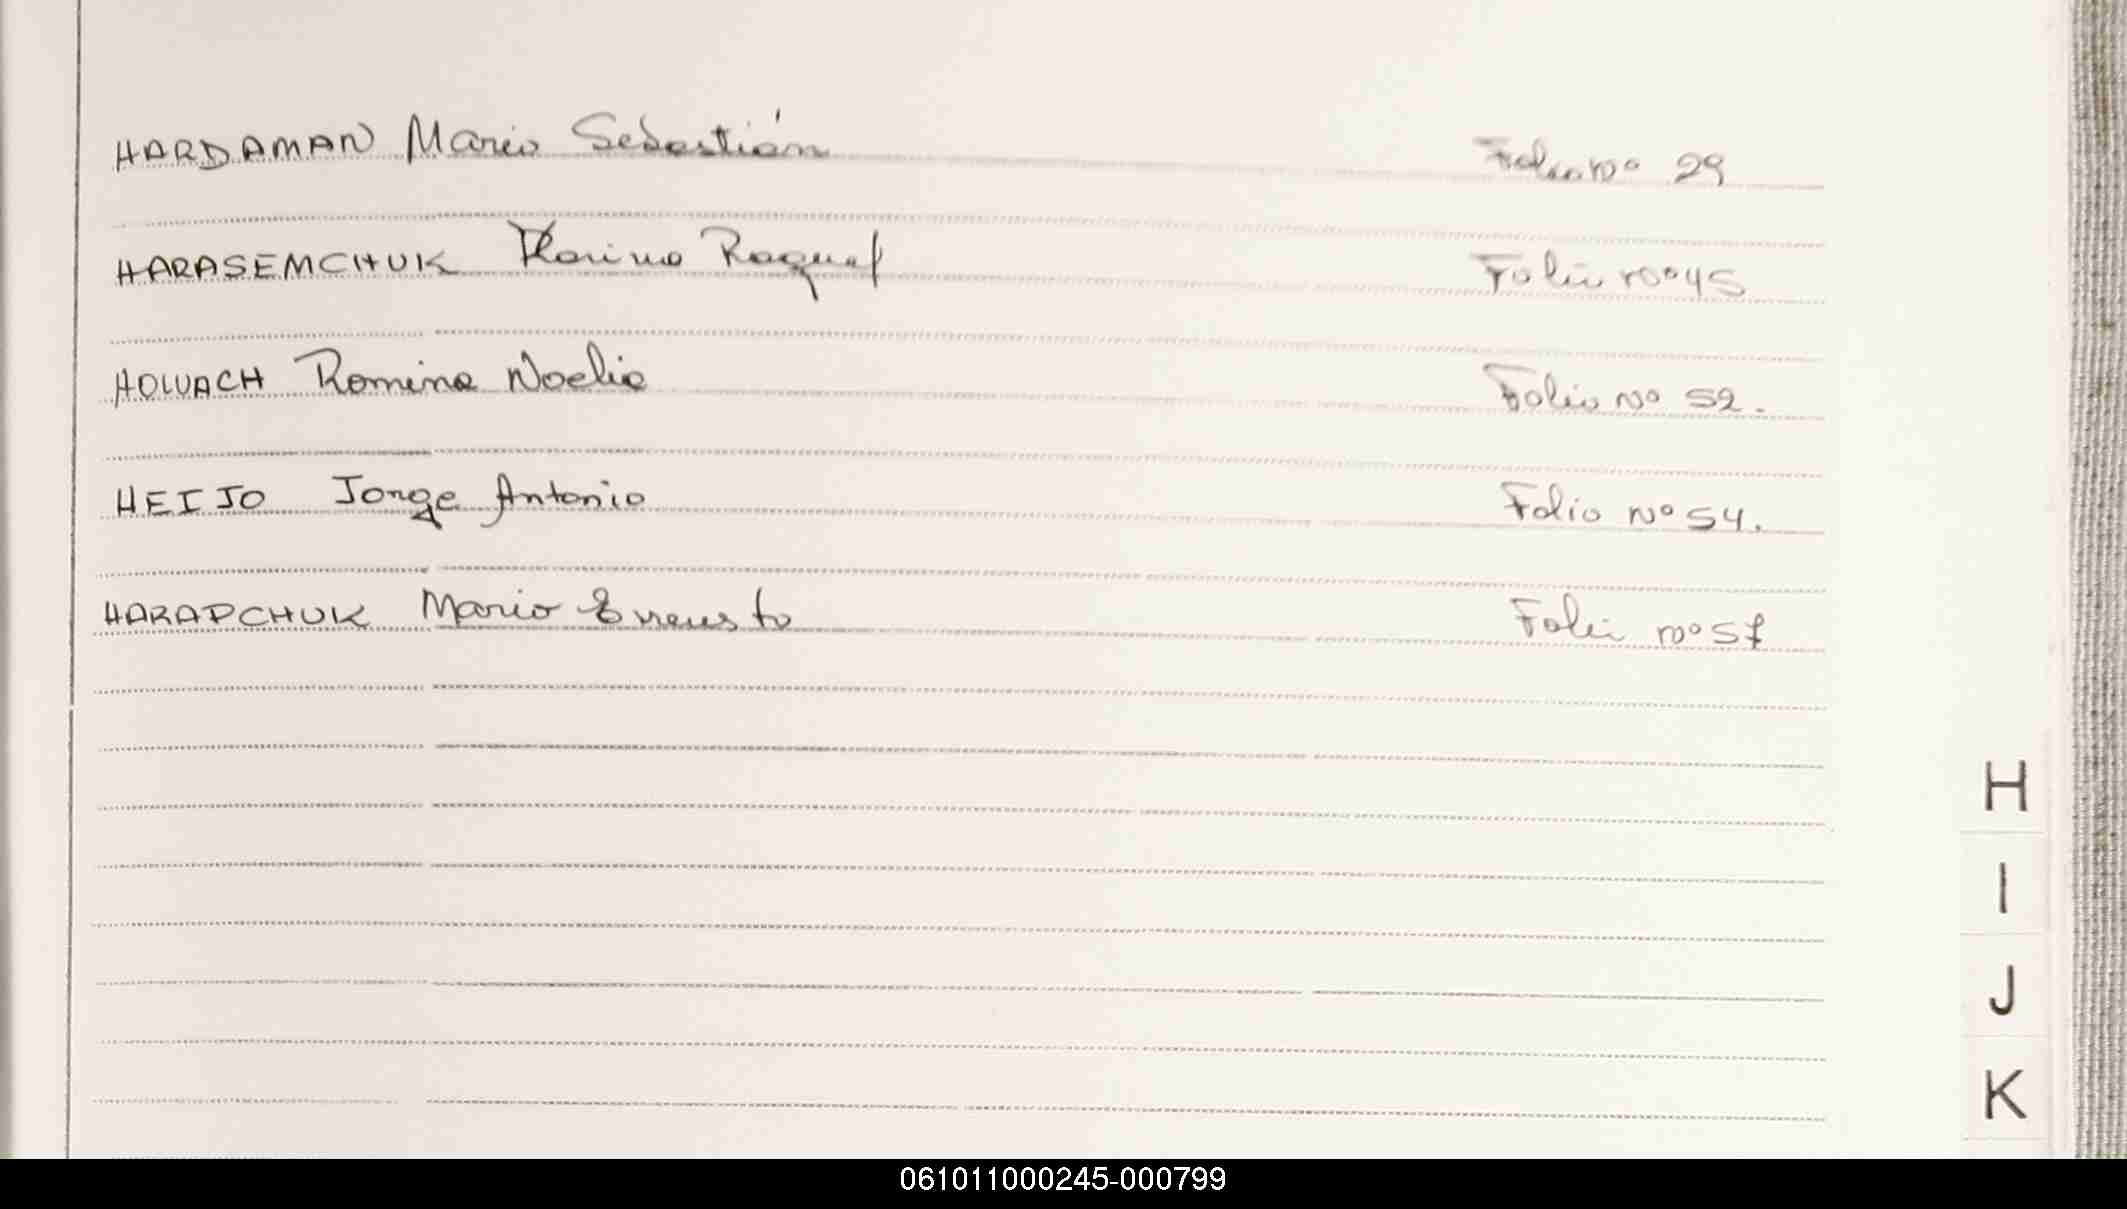 HARDAMAN Mario Sebastián Folio Nº 29
HARASEMCHUK Karina Raquel Folio Nº 45
HOLUACH Romina Noelia Folio Nº 52.
HEIJO Jorge Antonio Folio Nº 54.
HARAPCHUK Mario Ernesto Folio Nº 57
H
I
J
K
061011000245-000799